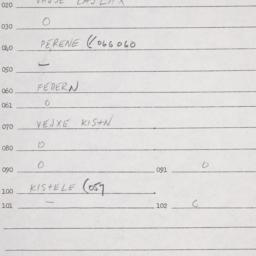 020
030 0
040 PERENE (066060
050 —
060 FEDERN
061 0
070 VEJXE KISTN
080 0
090 0 091 0
100 KISTELE (057
101 — 102 C